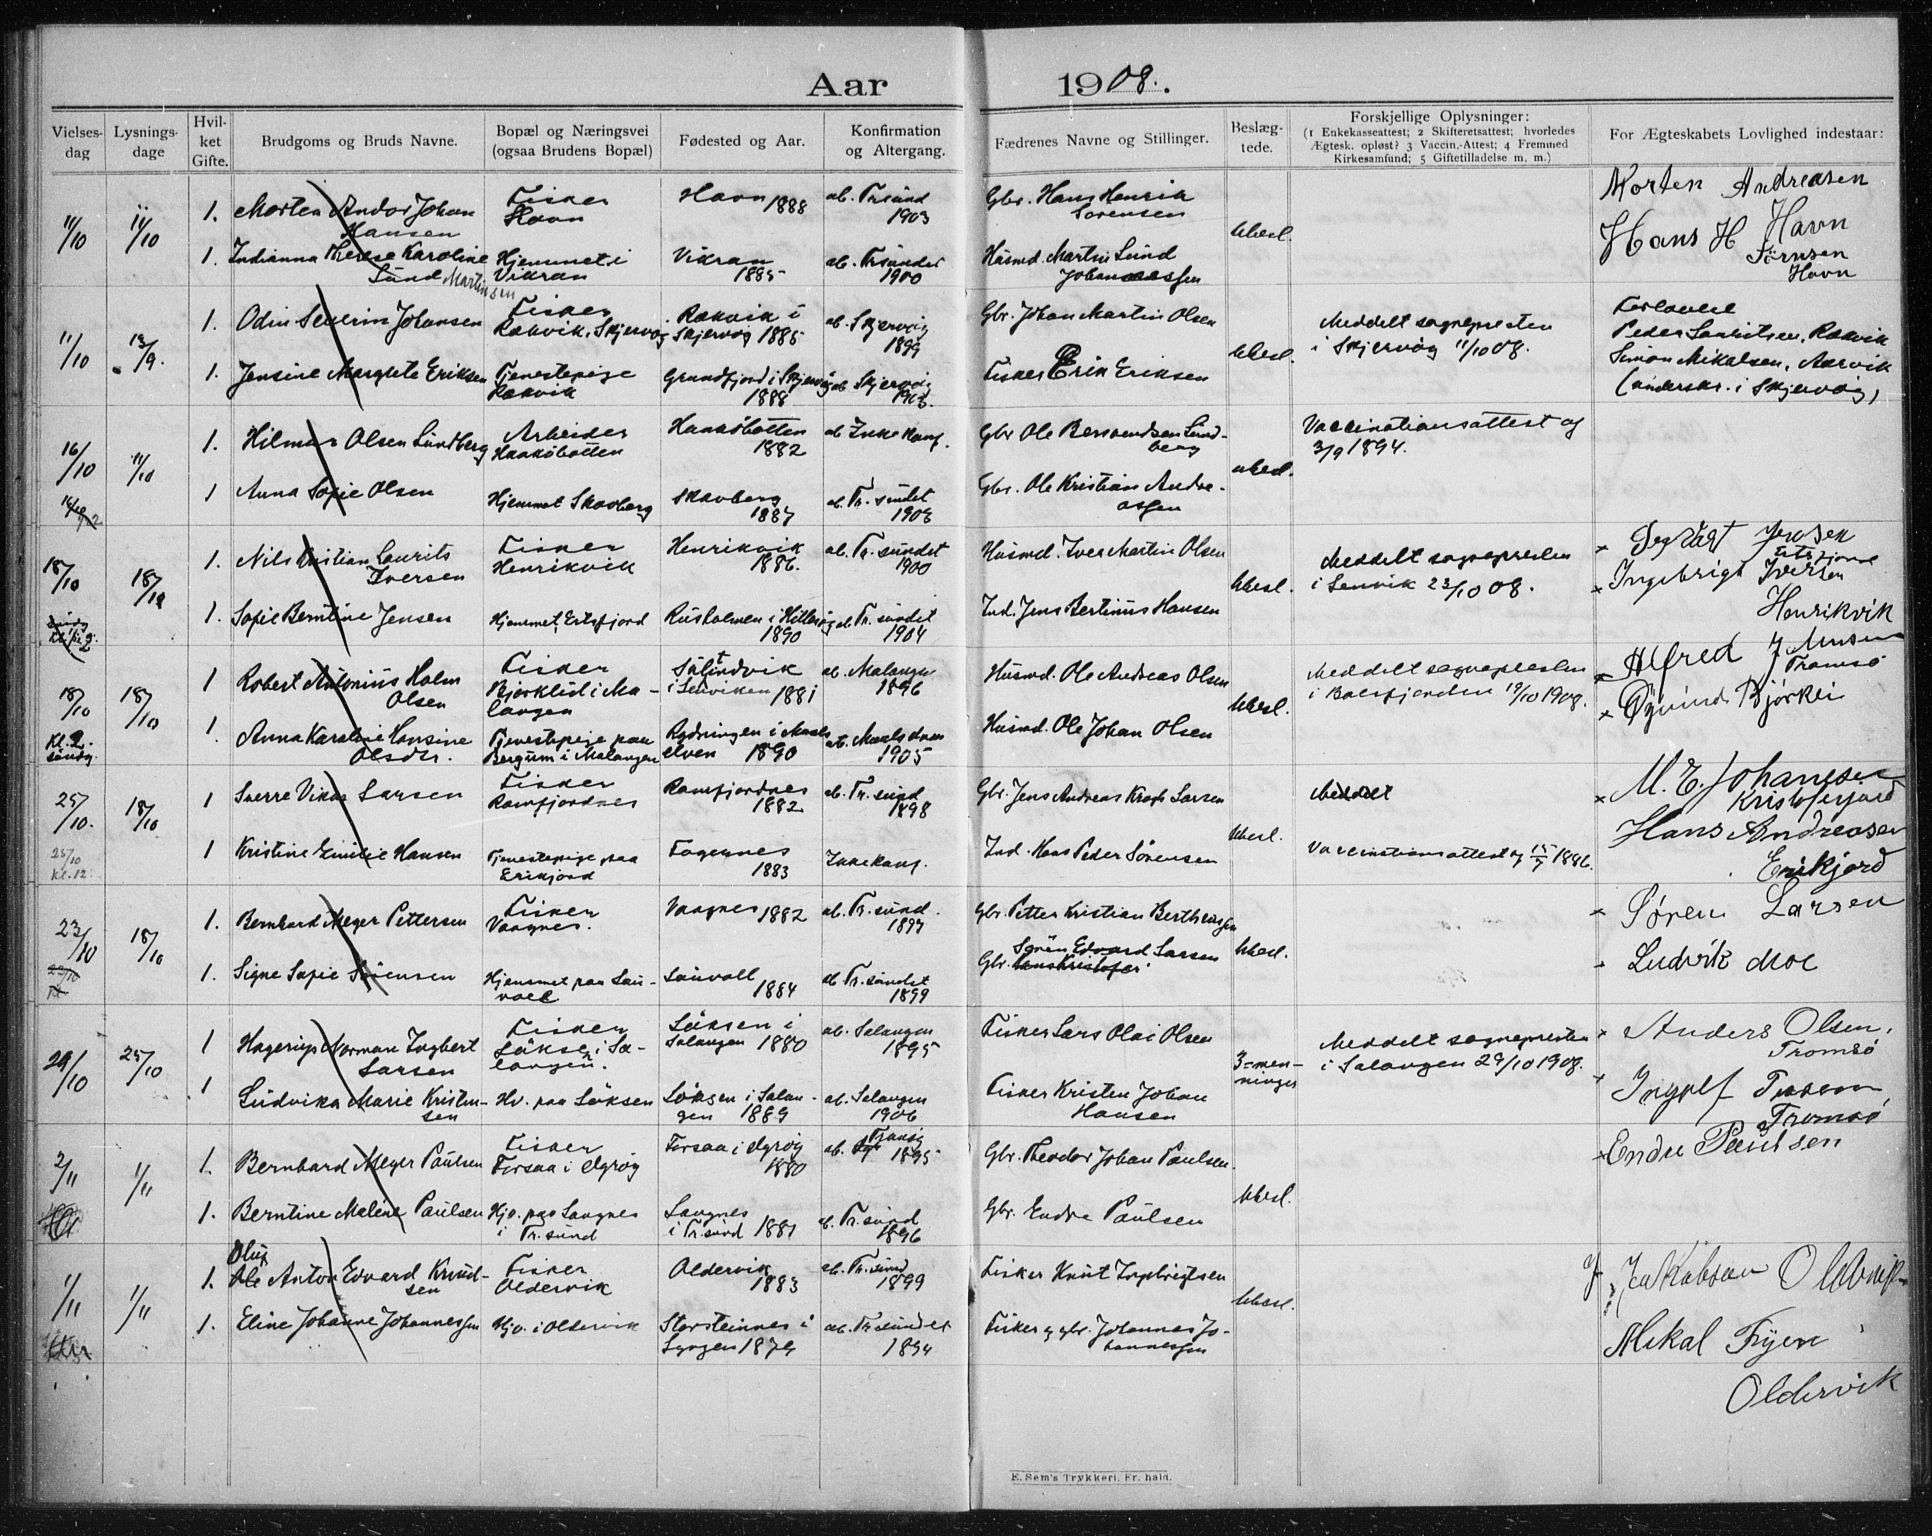 Aar 1908.
Vielses-dag
Lysnings-dage
Hvil-ket Gifte.
Brudgoms og Bruds Navne.
Bopæl og Næringsvei (ogsaa Brudens Bopæl)
Fødested og Aar.
Konfirmation og Altergang.
Fædrenes Navne og Stillinger.
Beslæg-tede.
Forskjellige Oplysninger:
(1 Enkekasseattest; 2 Skifteretsattest; hvorledes
Ægtesk. opløst? 3 Vaccin.-Attest; 4 Fremmed
Kirkesamfund; 5 Giftetilladelse m. m.)
For Ægteskabets Lovlighed indestaar:
11/10 11/10 1. Morten Andor Johan Hansen
Fisker Havn
Havn 1888
ab. Tr.sund 1903
Gbr. Hans Henrik Sorensen
Ubesl.
Morten Andreasen
Havn
Hans H Sørnsen
Havn
1. Indianna Therese Karoline Lund Martinsen
Hjemmet i Vikran
Vikran 1885
ab. Tr.sundet 1900
Husmd. Martin Lund Johannessen
11/10 13/9. 1. Odin Severin Johansen
Fisker Rakvik, Skjervøg
Rakvik i Skjervøg 1885
ab. Skjervøig 1899
Gbr. Johan Martin Olsen
Ubesl.
Meddelt sognepresten
i Skjervøg 11/10 08.
Forlovere
Peder Lauritsen, Rakvik
Simon Mikalsen, Aarvik
(underskr. i Skjervøg)
1. Jensine Margrete Eriksen
Tjenestepige Rakvik
Grundfjord i Skjervøg 1888
ab. Skjervøig
Fisker Erik Eriksen
16/10 11/10 1. Hilmar Olsen Lundberg
Arbeider Haakøbotten
Haakøbotten 1882
ab Ikke konf.
Gbr Ole Berntendsen Lundberg
ubesl.
Vaccinationsattest og
3/9 1894.
1 Anna Sofie Olsen
Hjemmet Skavberg
Skavberg 1887
ab. Tr. sundet
Gbr. Ole Kristian Andreassen
18/10 18/10 1. Nils Kristian Laurits Iversen
Fisker Henrikvik
Henrikvik 1886.
ab. Tr. sundet 1900
Husmd. Iver Martin Olsen
Ubesl.
Meddelt sognepresten
i Lenvik 23/10 08.
Jensen
Ertsfjord
Ingebrigt Iversen
Henrikvik
1. Sofie Berntine Jensen
Hjemmet, Ertsfjord
Rusholmen i Hillesøy 1890
ab. Tr. sundet 1904
Ind. Jens Bertinius Hansen
18/10 18/10 1 Robert Antonius Holm Olsen
Fisker Bjorklid i Malangen
i Lenviken 1881
ab. Malangen 1896
Husmd. Ole Andreas Olsen
Ubesl.
Meddelt sognepresten
i Balsfjorden 19/10 1908.
Alfred
Tromsø
Øyvind Bjørkli
Kl. 2. søndg.
1. Anna Karoline Hansine Olsdtr.
Tjenestepige paa Bergum i Malangen
Rydningen i Maalselven 1890
ab. Maalselven 1905
Husmd. Ole Johan Olsen
25/10. 18/10 1 Sverre Viktor Larsen
Fisker Ramfjordnes
Ramfjordnes 1882
ab. Tr. sund 1898
Gbr. Jens Andreas Krogh Larsen
Ubesl.
Meddelt
M. E. Johansen
Kristoferjord
Hans Andreasen
Erikjord
25/10 kl. 12.
1 Kristine Emilie Hansen
Tjenestepige paa Erikjord
Fagernes 1883
Ikke konf.
Ind. Hans Peder Sørensen
Vaccinationsattest og 15/7 1886.
23/10 18/10 1. Bernhard Meyer Pettersen
Fisker Vaagnes.
Vaagnes 1882
ab. Tr. sund. 1897
Gbr. Petter Kristian Berthensen
Ubesl.
Søren Larsen
Ludvik Moe
1. Signe Sofie Sørensen
Hjemmet paa Lauvoll
Lauvoll 1884
ab Tr. sundet 1899
Gbr. Søren Edvard Larsen
29/10 25/10 1 Hagerup Norman Ingbert Larsen
Fisker Løksen i Salangen.
Løksen i Salangen 1880
ab. Salangen 1895
Fisker Lars Olai Olsen
3=menninger
Meddelt sognepresten
i Salangen 29/10 1908.
Anders Olsen,
Tromsø
Ingolf
Tromsø
1 Ludvika Marie Kristensen
Hv. paa Løksen
Løksen i Salangen 1889
ab. Salangen 1906
Fisker Kristen Johan Hansen
2/11 1/11 1. Bernhard Meyer Paulsen
Fisker Forsaa i Dyrøy
Forsaa i Dyrøy 1880
ab. Tranøy 1895
Gbr. Theodor Johan Paulsen
Ubesl.
Endre Paulsen
1. Berntine Malene Paulsen
Hjv. paa Langnes i Tr. sund
Langnes i Tr. sund 1881
ab. Tr. sund 1896
Gbr. Endre Paulsen
1/11 1/11 1. Oluf Anton Edvard Knudsen
Fisker Oldervik
Oldervik 1883
ab. Tr. sund 1899
Fisker Knut Ingebrigtsen
Ubesl.
J. Jakobsen Oldervik
Mikal Fryen
Oldervik
1. Eline Johanne Johannessen
Hjv. i Oldervik
Storsteinnes i Lyngen 1879
ab. Tr. sundet 1894
Fisker og gbr. Johannes Johannessen
E. Sem's Trykkeri, Fr. hald.